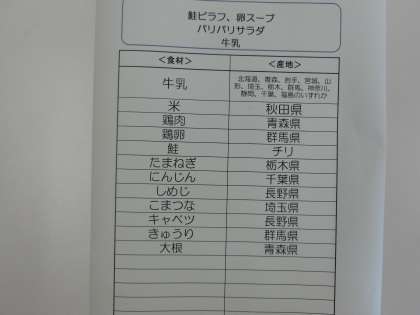 鮭ピラフ、卵スープ
パリパリサラダ
牛乳
＜食材＞ ＜産地＞
牛乳 北海道、青森、岩手、宮城、山
形、埼玉、栃木、群馬、神奈川、
静岡、千葉、福島のいずれか
米 秋田県
鶏肉 青森県
鶏卵 群馬県
鮭 チリ
たまねぎ 栃木県
にんじん 千葉県
しめじ 長野県
こまつな 埼玉県
キャベツ 長野県
きゅうり 群馬県
大根 青森県